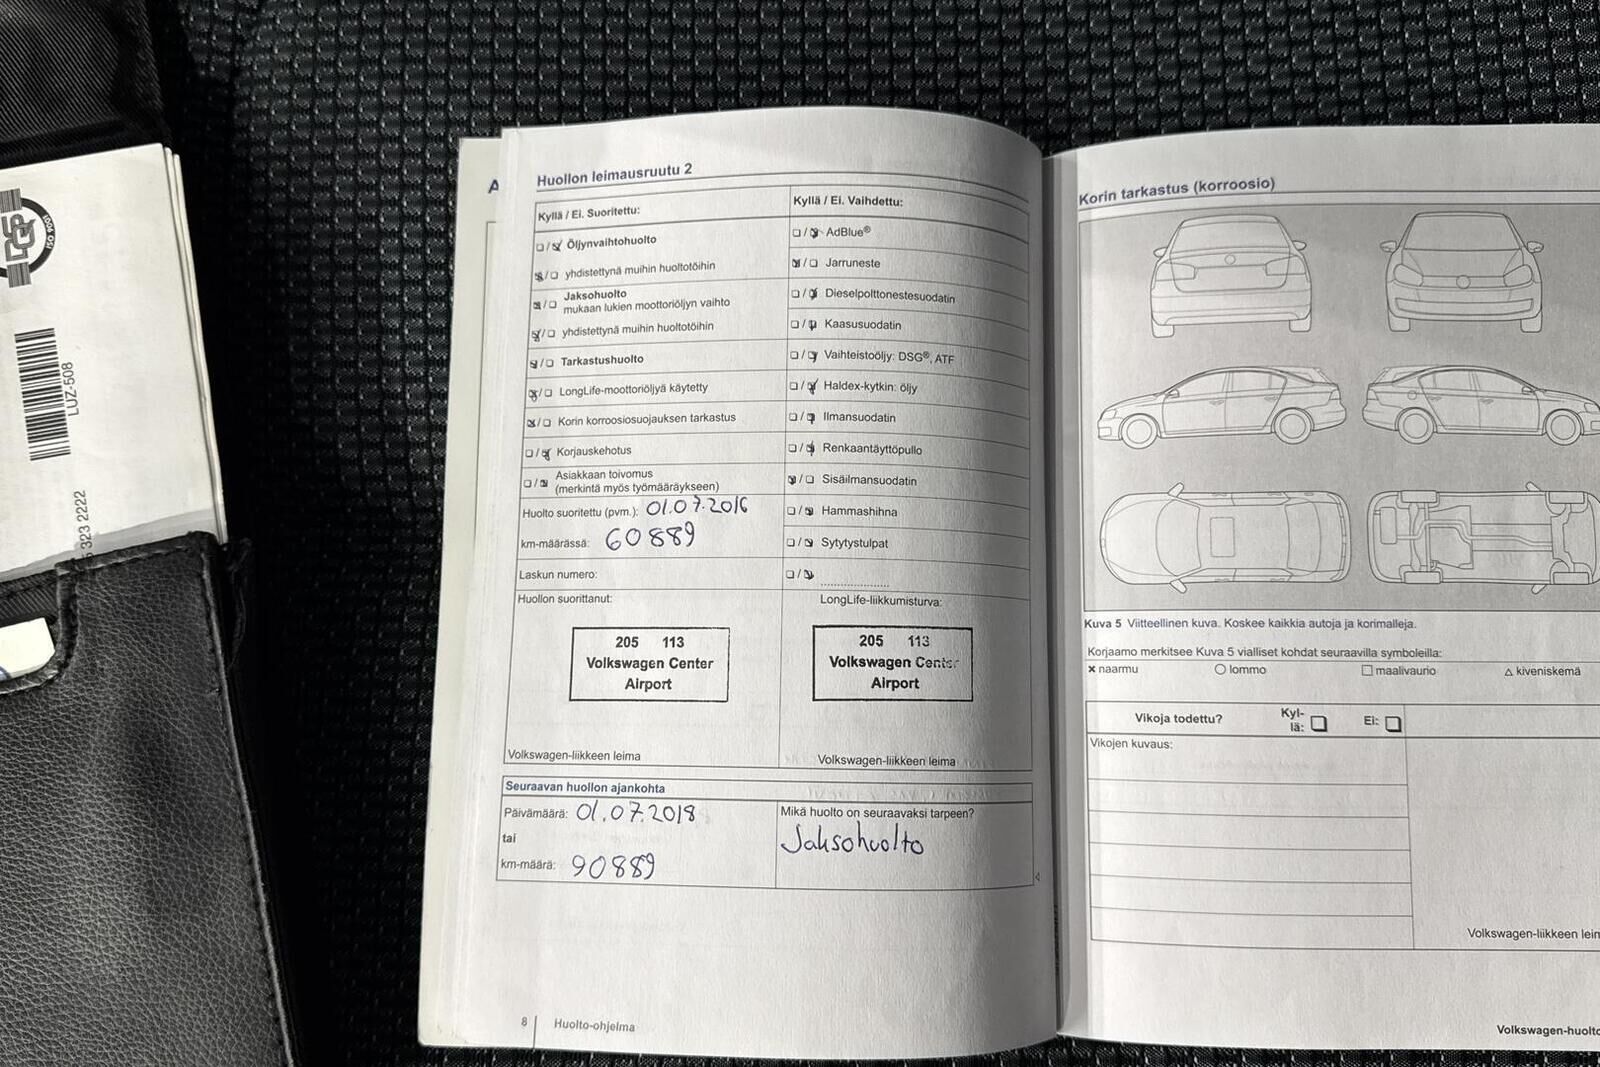 ISO 9001
DQS
LUZ-508
323 2222
A
Huollon leimausruutu 2
Kyllä / Ei. Suoritettu:
Öljynvaihtohuolto
yhdistettynä muihin huoltotöihin
Jaksohuolto
mukaan lukien moottoriöljyn vaihto
yhdistettynä muihin huoltotöihin
Tarkastushuolto
LongLife-moottoriöljyä käytetty
Korin korroosiosuojauksen tarkastus
Korjauskehotus
Asiakkaan toivomus
(merkintä myös työmääräykseen)
Huolto suoritettu (pvm.): 01.07.2016
km-määrässä: 60889
Laskun numero:
Kyllä / Ei. Vaihdettu:
AdBlue®
Jarruneste
Dieselpolttonestesuodatin
Kaasusuodatin
Vaihteistoöljy: DSG®, ATF
Haldex-kytkin: öljy
Ilmansuodatin
Renkaantäyttöpullo
Sisäilmansuodatin
Hammashihna
Sytytystulpat
Huollon suorittanut:
205 113
Volkswagen Center
Airport
Volkswagen-liikkeen leima
LongLife-liikkumisturva:
205 113
Volkswagen Center
Airport
Volkswagen-liikkeen leima
Seuraavan huollon ajankohta
Päivämäärä: 01.07.2018
tai
km-määrä: 90889
Mikä huolto on seuraavaksi tarpeen?
Jaksohuolto
8 Huolto-ohjelma
Korin tarkastus (korroosio)
Kuva 5 Viitteellinen kuva. Koskee kaikkia autoja ja korimalleja.
Korjaamo merkitsee Kuva 5 vialliset kohdat seuraavilla symboleilla:
× naarmu ○ lommo □ maalivaurio △ kiveniskemä
Vikoja todettu? Kyl-
lä: Ei:
Vikojen kuvaus:
Volkswagen-liikkeen leim
Volkswagen-huolto